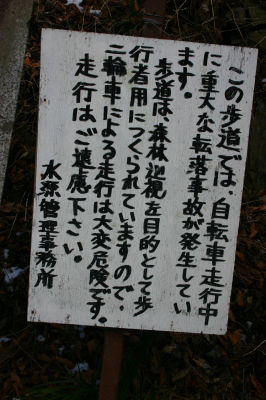 この歩道では、自転車走行中
に重大な転落事故が発生してい
ます。
歩道は、森林巡視を目的として歩
行者用につくられていますので、
二輪車による走行は大変危険です。
走行はご遠慮下さい。
水源管理事務所